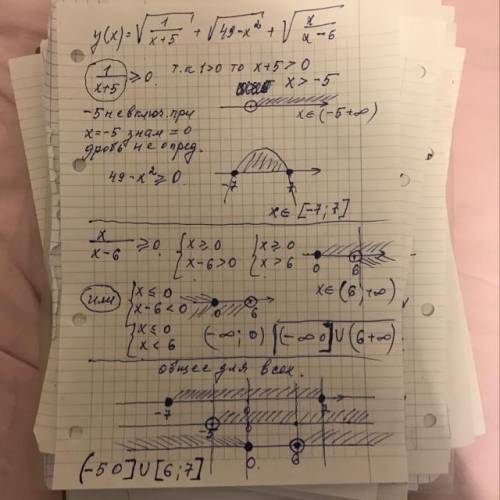 y(x)=√(1/(x+5)) + √(49-x²) + √(x/(x-6))
1/(x+5) ≥ 0. т.к 1>0 то x+5>0
x>-5
-5 не включ. при
x=-5 знам = 0
дробь не опред.
x∈(-5+∞)
49-x²≥0
-7 7
x∈ [-7; 7]
x/(x-6) ≥0. {x≥0 {x≥0
{x-6>0 {x>6
0 6
x∈(6;+∞)
или {x≤0
{x-6<0
0 6
{x≤0
{x<6
(-∞; 0) (-∞ 0]∪(6+∞)
общее для всех.
-7 7
-5
0. 6
(-5 0]∪[6;7]